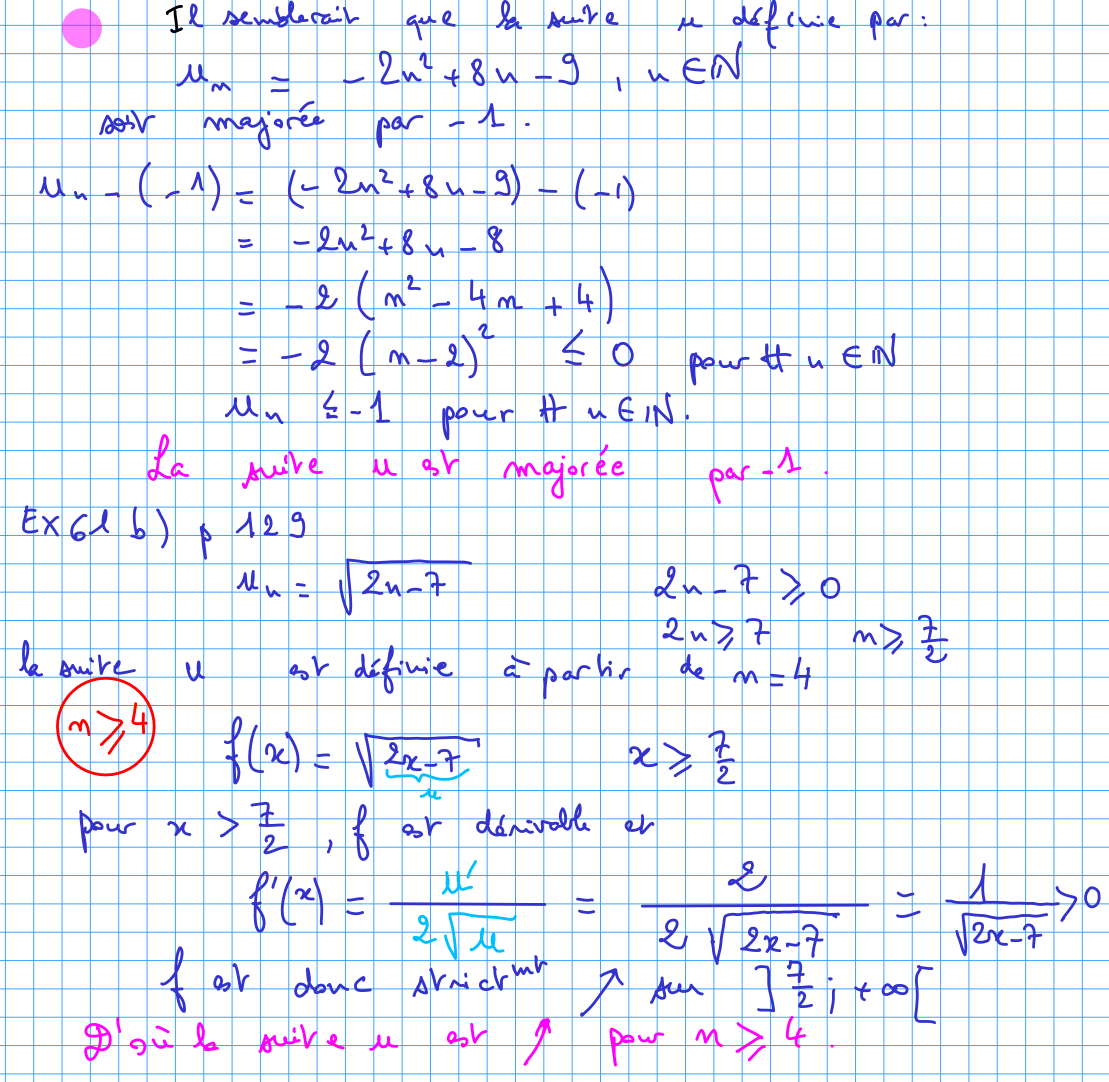 Il semblerait que la suite u définie par :
uₙ = -2n² + 8n - 9 , n ∈ ℕ
soit majorée par -1 .
uₙ - (-1) = (-2n² + 8n - 9) - (-1)
= -2n² + 8n - 8
= -2 (n² - 4n + 4)
= -2 (n - 2)² ≤ 0 pour tt n ∈ ℕ
uₙ ≤ -1 pour tt n ∈ ℕ.
La suite u est majorée par -1 .
Ex 61 b) p 129
uₙ = √(2n-7) 2n - 7 ⩾ 0
2n ⩾ 7 n ⩾ 7/2
la suite u est définie à partir de n = 4
n ⩾ 4
f(x) = √(2x-7) x ⩾ 7/2
u
pour x > 7/2 , f est dérivable et
f'(x) = u'/(2√u) = 2/(2√(2x-7)) = 1/√(2x-7) > 0
f est donc strictᵐᵗ ↗ sur ]7/2 ; +∞[
D'où la suite u est ↗ pour n ⩾ 4 .